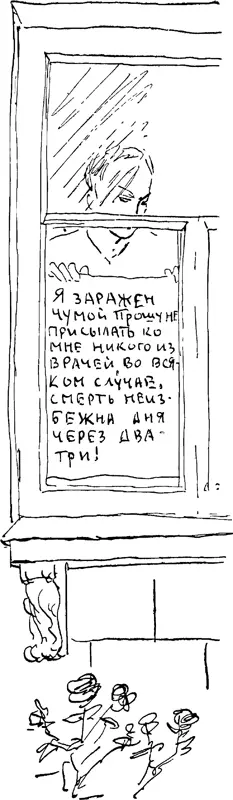 Я ЗАРАЖЕН
ЧУМОЙ ПРОШУ НЕ
ПРИСЫЛАТЬ КО
МНЕ НИКОГО ИЗ
ВРАЧЕЙ, ВО ВСЯ-
КОМ СЛУЧАЕ,
СМЕРТЬ НЕИЗ-
БЕЖНА ДНЯ
ЧЕРЕЗ ДВА-
ТРИ!